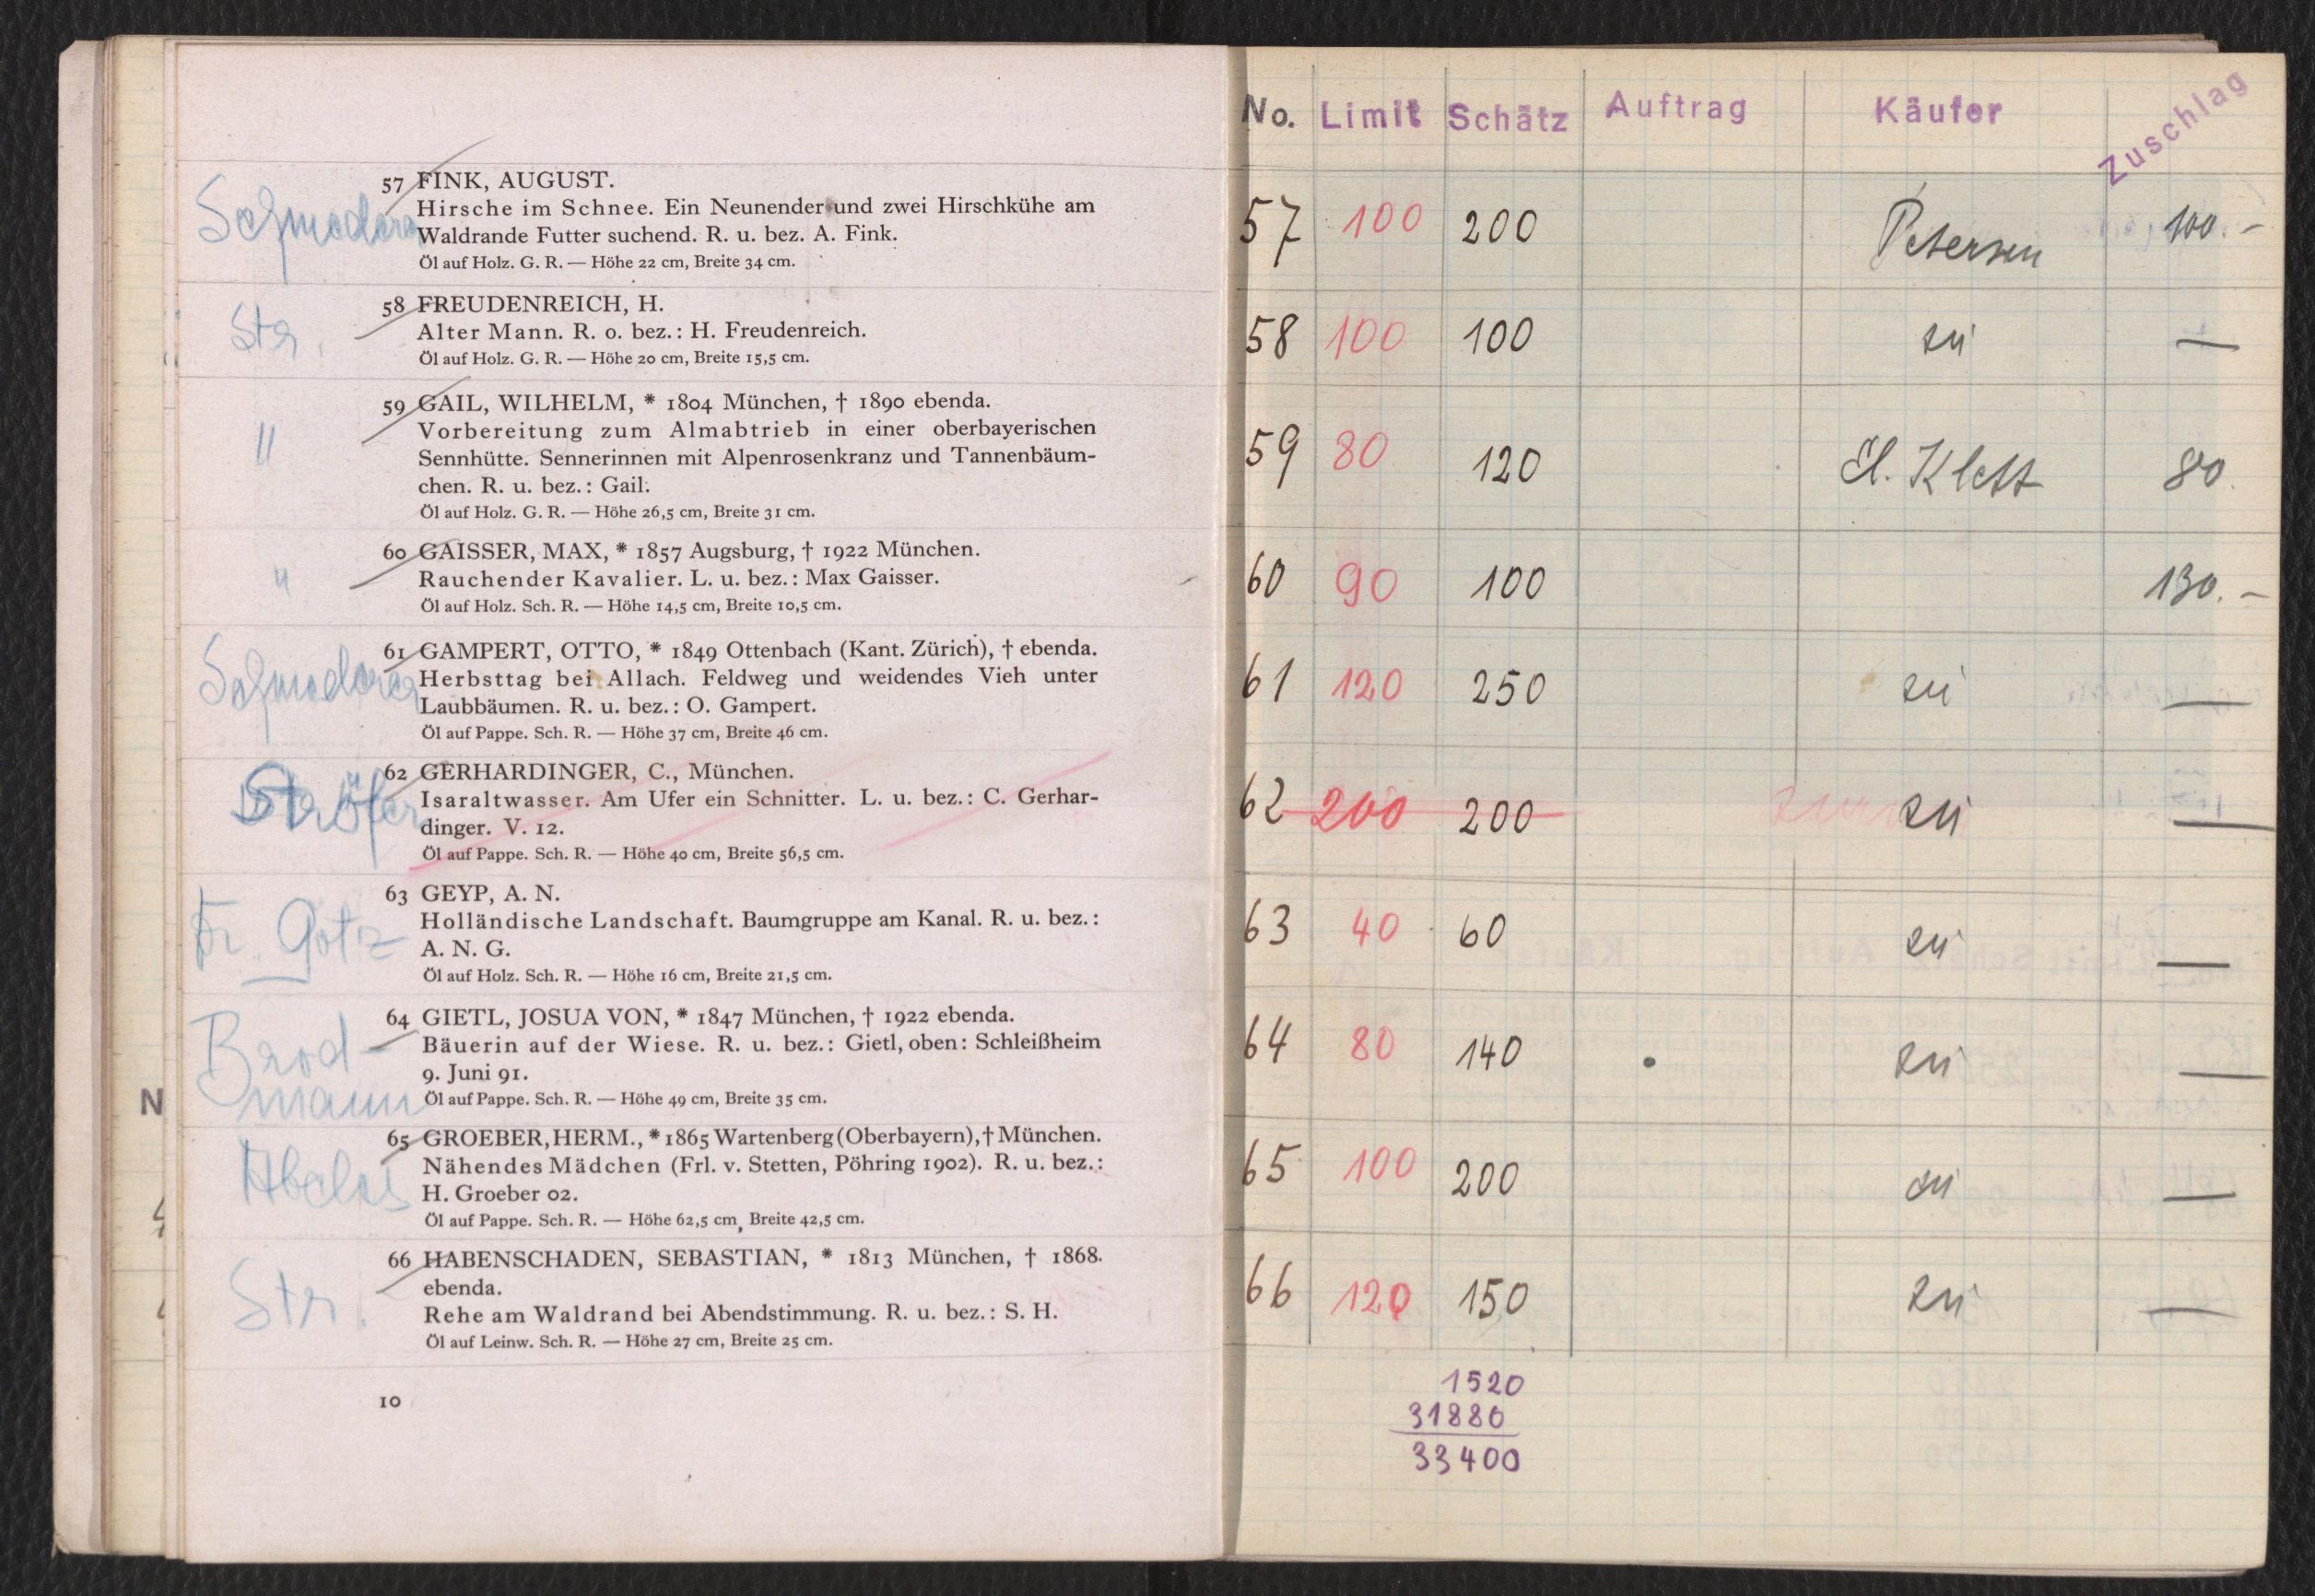 57 FINK, AUGUST.
Hirsche im Schnee. Ein Neunender und zwei Hirschkühe am
Waldrande Futter suchend. R. u. bez. A. Fink.
Öl auf Holz. G. R. — Höhe 22 cm, Breite 34 cm.
Str.
58 FREUDENREICH, H.
Alter Mann. R. o. bez.: H. Freudenreich.
Öl auf Holz. G. R. — Höhe 20 cm, Breite 15,5 cm.
"
59 GAIL, WILHELM, * 1804 München, † 1890 ebenda.
Vorbereitung zum Almabtrieb in einer oberbayerischen
Sennhütte. Sennerinnen mit Alpenrosenkranz und Tannenbäum-
chen. R. u. bez.: Gail.
Öl auf Holz. G. R. — Höhe 26,5 cm, Breite 31 cm.
"
60 GAISSER, MAX, * 1857 Augsburg, † 1922 München.
Rauchender Kavalier. L. u. bez.: Max Gaisser.
Öl auf Holz. Sch. R. — Höhe 14,5 cm, Breite 10,5 cm.
61 GAMPERT, OTTO, * 1849 Ottenbach (Kant. Zürich), † ebenda.
Herbsttag bei Allach. Feldweg und weidendes Vieh unter
Laubbäumen. R. u. bez.: O. Gampert.
Öl auf Pappe. Sch. R. — Höhe 37 cm, Breite 46 cm.
Ströfer
62 GERHARDINGER, C., München.
Isaraltwasser. Am Ufer ein Schnitter. L. u. bez.: C. Gerhar-
dinger. V. 12.
Öl auf Pappe. Sch. R. — Höhe 40 cm, Breite 56,5 cm.
Fr. Götz
63 GEYP, A. N.
Holländische Landschaft. Baumgruppe am Kanal. R. u. bez.:
A. N. G.
Öl auf Holz. Sch. R. — Höhe 16 cm, Breite 21,5 cm.
Brod-
mann
64 GIETL, JOSUA VON, * 1847 München, † 1922 ebenda.
Bäuerin auf der Wiese. R. u. bez.: Gietl, oben: Schleißheim
9. Juni 91.
Öl auf Pappe. Sch. R. — Höhe 49 cm, Breite 35 cm.
Abeles
65 GROEBER, HERM., * 1865 Wartenberg (Oberbayern), † München.
Nähendes Mädchen (Frl. v. Stetten, Pöhring 1902). R. u. bez.:
H. Groeber 02.
Öl auf Pappe. Sch. R. — Höhe 62,5 cm, Breite 42,5 cm.
Str.
66 HABENSCHADEN, SEBASTIAN, * 1813 München, † 1868.
ebenda.
Rehe am Waldrand bei Abendstimmung. R. u. bez.: S. H.
Öl auf Leinw. Sch. R. — Höhe 27 cm, Breite 25 cm.
10
N
No. Limit Schätz Auftrag Käufer Zuschlag
57 100 200 Petersen 100.-
58 100 100 zü —
59 80 120 El. Klett 80.
60 90 100 130.-
61 120 250 zü —
62 200 200 zü —
63 40 60 zü —
64 80 140 zü —
65 100 200 zü —
66 120 150 zü —
1520
31880
33400